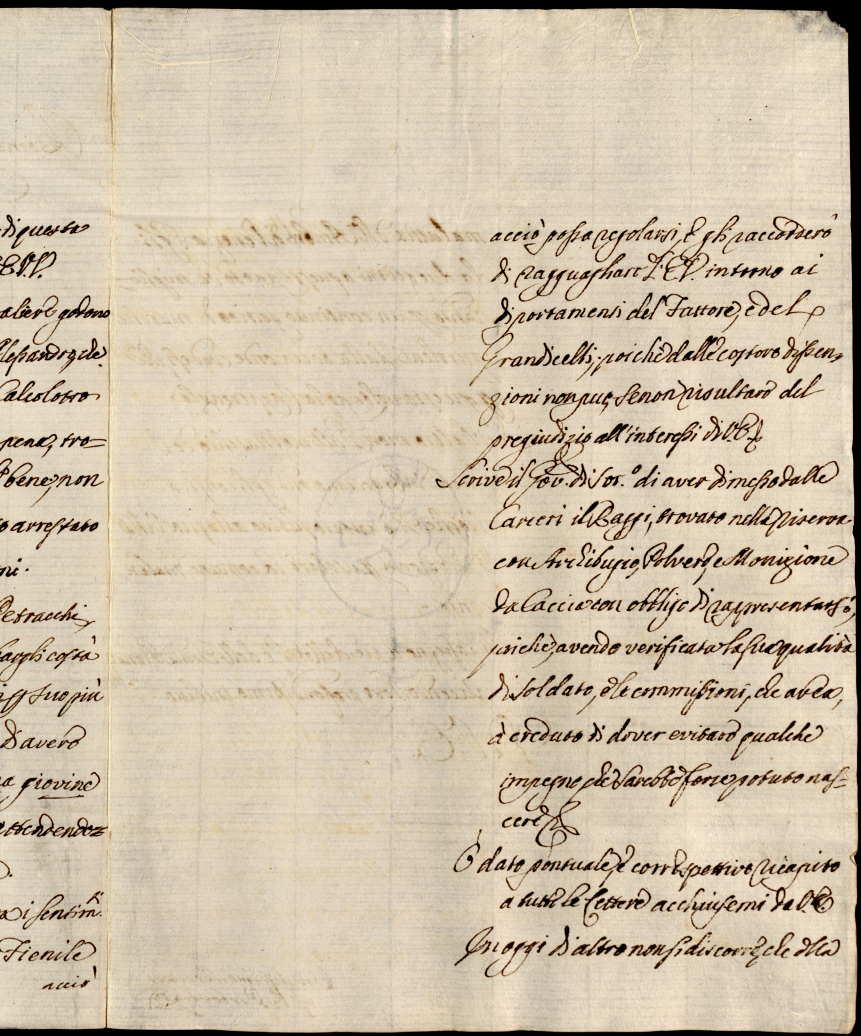 di questa
E.V.
godono
Alessandro, che
Calcolotro
pena, tro=
bene, non
arrestato
ni.
Petracchi,
costà
suo più
D'avere
giovine
attendendo
i sentim.ti
Fienile
acciò
acciò possa regolarsi, e gli raccorderò
di ragguagliare l'E.V. intorno ai
diportamenti del Fattore, e del
Grandicelli; poiche dalle costoro dissen=
zioni non può, se non risultare del
pregiudizio all'interessi di V.E.
Scrive il Gov. di Sor.o di aver dimesso dalle
Carceri il Baggi, trovato nella Riserva
con Archibugio, Polvere, e Monizione
da Caccia con obbligo di rappresentarsi,
poiche, avendo verificata la sua qualità
di soldato, e le commissioni, che avea,
à creduto di dover evitare qualche
impegno, che sarebbe forse potuto nas=
cere
Ò dato pontuale, e correspettivo ricapito
a tutte le Lettere acchiusemi da V.E.
In oggi d'altro non si discorre, che della